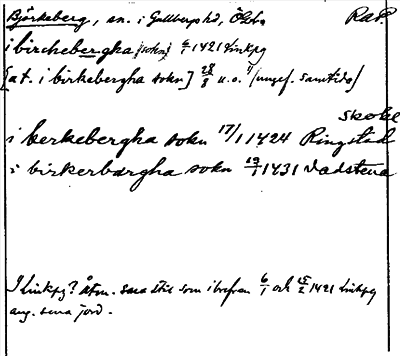 Björkeberg, sn. i Gullbergs hd, Ötebo RaP.
i birchebergha (sokn) 6/1 1421 Linkpg
[at. i birkebergha sokn] 28/8 u.o. (ungef. samtidig)
Skokl
i berkebergha sokn 17/1 1424 Ringstad
i birkerbærgha sokn 19/1 1431 Vadstena
I Linkpg? Åtm. sma stil som i brefven 6/1 och 15/2 1421 Linkpg
ang. sma jord.